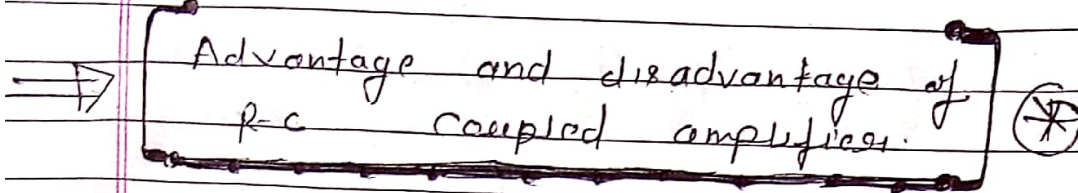 Advantage and disadvantage of
R-C coupled amplifier.